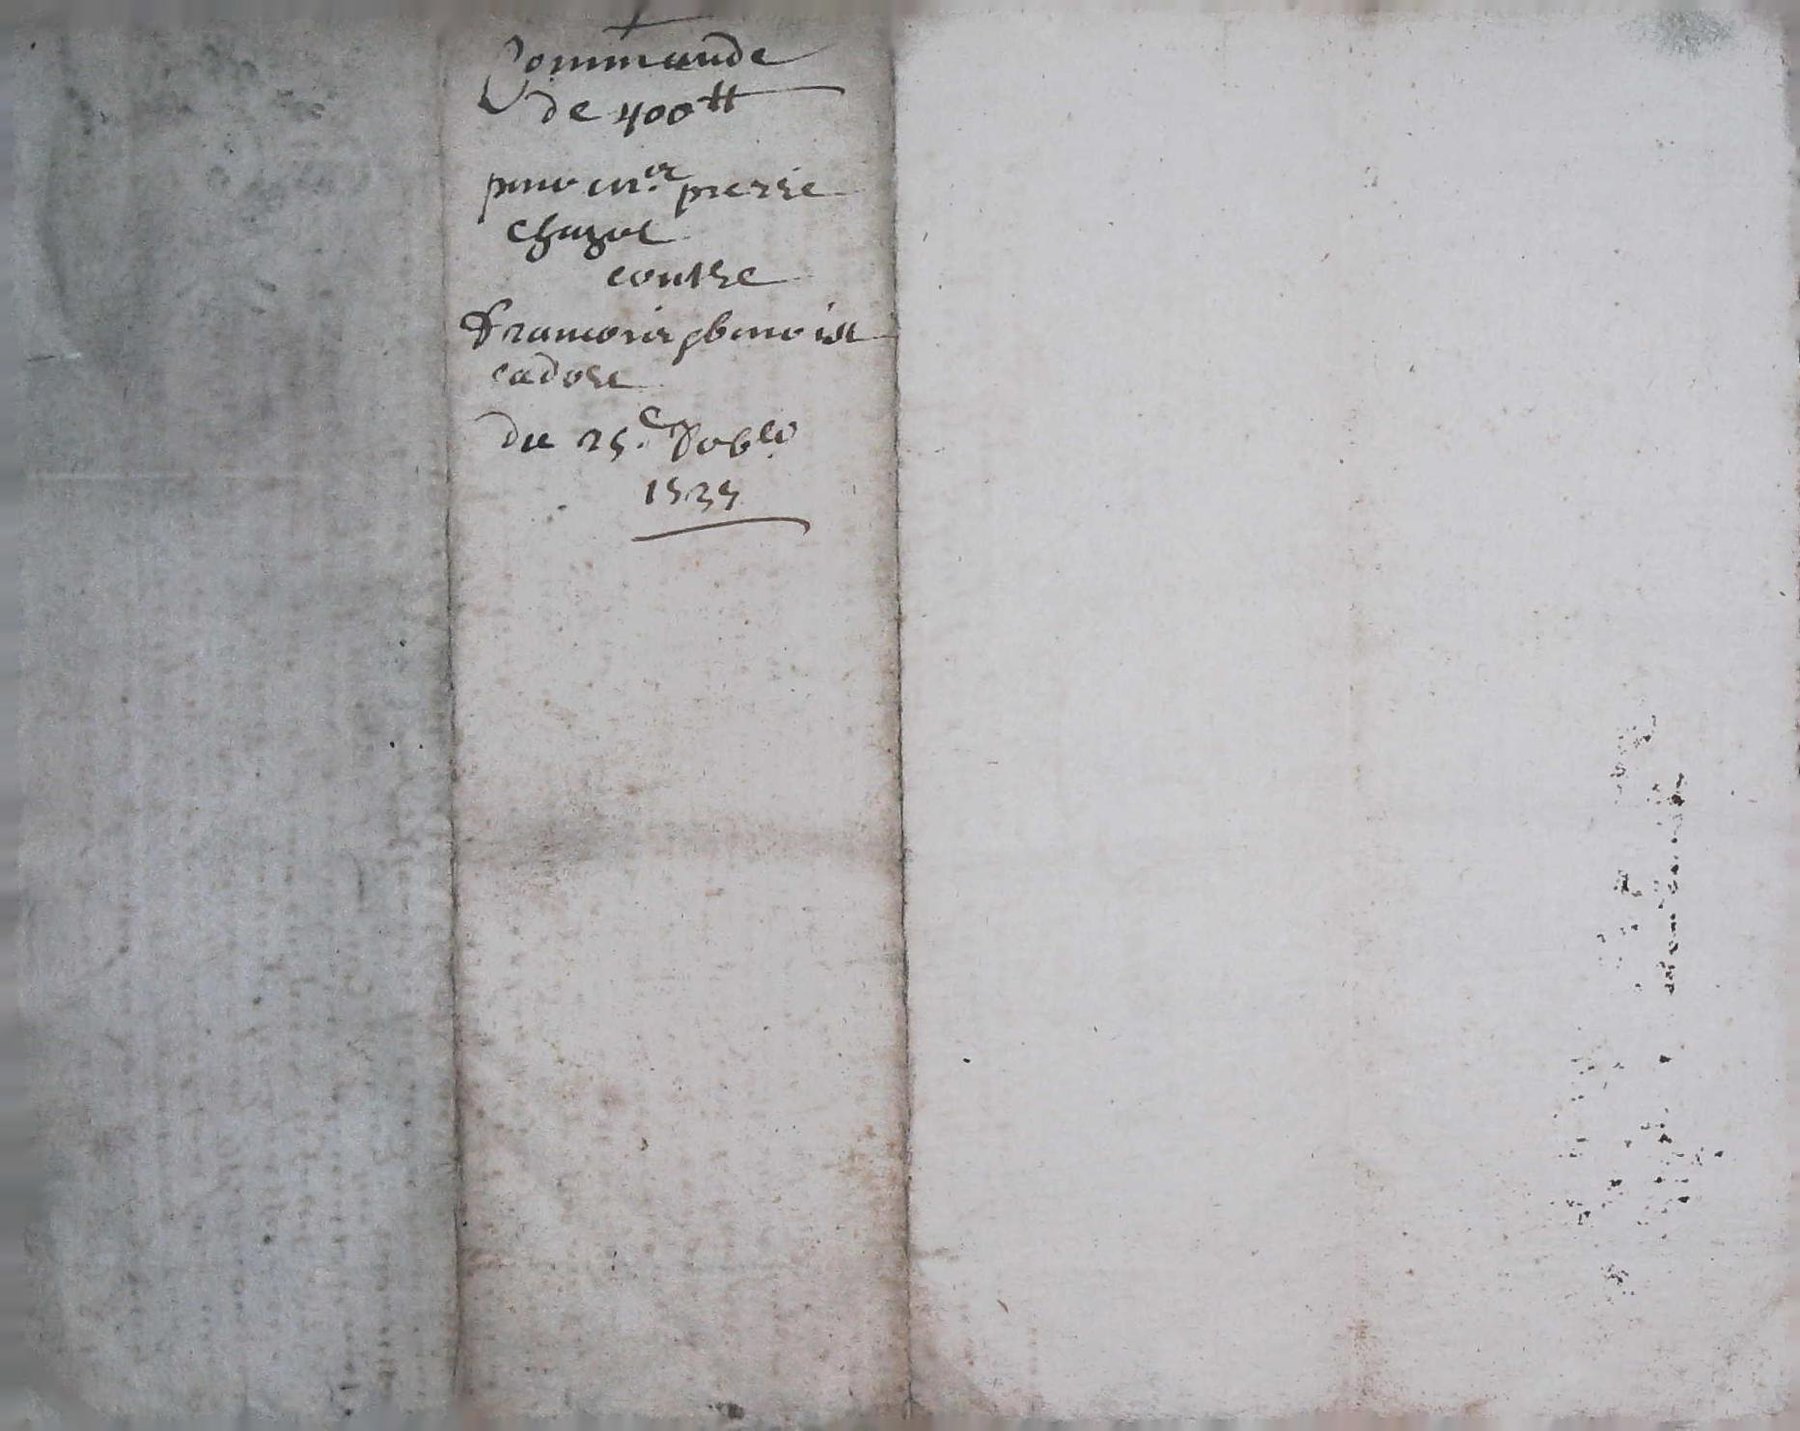 Commande
de 400tt
pour mr. pierre
chazot
contre
francois et benoist
cadore
du 25e. 
1535